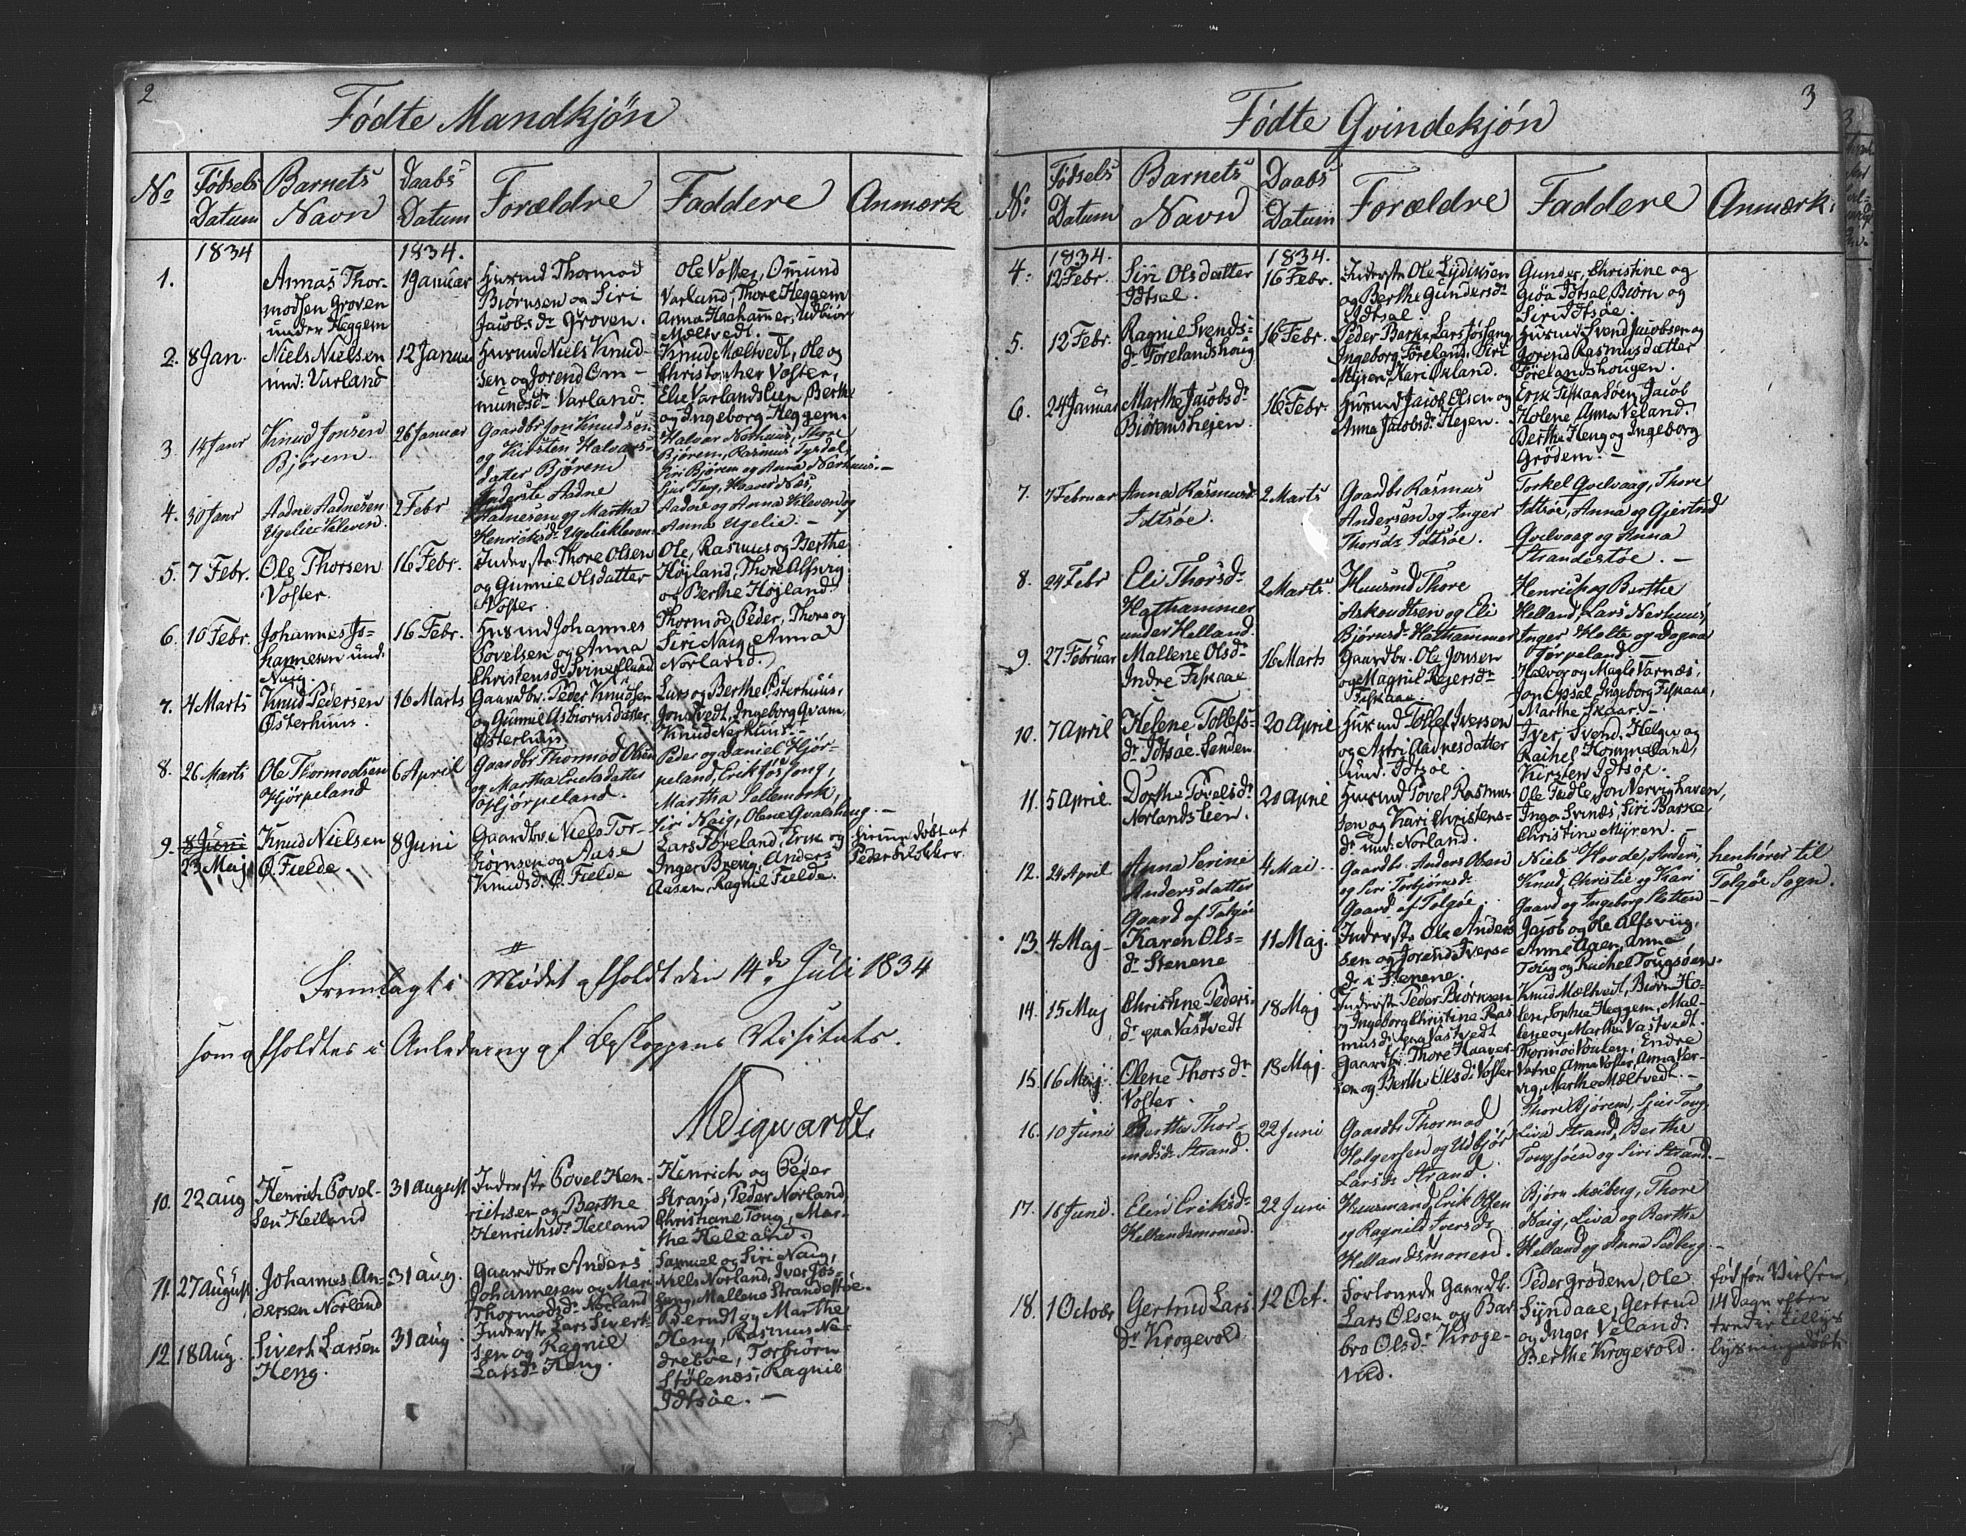 2
Fødte Mandkjön
No
Fødsels Datum
Barnets Navn
Daabs Datum
Forældre
Faddere
Anmærk
1834
1834.
1.
Annas Thor-
modsen Groven
under Heggem
1 Januar
Huusmd Thormod
Biørnsen og Siri
Jacobsdr Groven.
Ole Voster, Omund
Varland, Thore Heggem
Anna Haahammer, Udbiør
Mæltvedt. —
2.
8 Jan.
Niels Nielsen
und: Varland
12 Januar
Huusmd Niels Knud-
sen og Jorend Om-
mundsdr Varland.
Knud Mæltvedt, Ole og
Christopher Voster,
Elie Varlandslien, Berthe
og Ingeborg Heggem.
3
14 Janr
Knud Jonsen
Bjørem
26 Januar
Gaardbr Jon Knudsøn
og Kirsten Halvars-
dater Bjørem
Halvar Nothuus, Thore
Bjørem, Rasmus Tysdal,
Siri Bjørem og Anna Nerhuus. —
4.
30 Janr
Aadne Aadnesen
Ugelie Kleven.
2 Febr
Inderste Aadne
Aadnesen og Martha
Henricksdr Ugeliekleven
Sjur Toug, Haavar Næs,
Aadne og Anna Kleven og
Anna Ugelie. —
5.
7 Febr.
Ole Thorsen
Voster.
16 Febr.
Inderste Thore Olsen
og Gunnile Olsdatter
Voster.
Ole, Rasmus og Berthe
Højland, Thore Alsvig
og Berthe Højland.
6.
10 Febr.
Johannes Jo-
hannesen und:
Naig.
16 Febr.
Husmd Johannes
Povelsen og Anna
Christensdr Svinesland
Thormod, Peder, Thore og
Siri Naig, Anna
Norland.
7.
4 Marts
Knud Pedersen
Østerhuus.
16 Marts
Gaardbr. Peder Knudsen
og Gunnil Asbiornsdatter
Østerhuus
Lars og Berthe Østerhuus,
Jon Tvedt, Ingeborg Qvam,
Knud Nerhuus. -
8.
26 Marts
Ole Thormodsen
Hjørpeland
6 April
Gaardbr Thormod Olsen
og Martha Erichsdatter
Hjørpeland.
Peder og Daniel Hjør-
peland, Erik Jøssong,
Martha Sellemork,
Siri Naig, Olene Qvalshoug. —
9.
8 Juni
23 Maj
Knud Nielsen
Ø. Fielde
8 Juni
Gaardbr Niels Tor-
biørnsen og Aase
Knudsdr Ø. Fielde
Lars Føreland, Erik og
Inger Brevig, Anders
Aasen, Ragnil Fielde.
hiemme døbt af
Peder Klokker
Fremlagt i Mødet afholdt den 14de Juli 1834
som afholdtes i Anledning af Biskoppens Visitats.
10.
22 aug
Henrich Povel-
sen Helland
31 august
Inderste Povel Hen-
richsen og Berthe
Henrichsdr Helland
Henrich og Peder
Strand, Peder Norland,
Christiane Toug, Mar-
the Helland.
11.
27 August
Johannes An-
dersen Norland
31 aug.
Gaardbr Anders
Johannesen og Mari
Thormodsdr Norland
Samuel og Siri Naig,
Niels Norland, Iver Jøs-
seng, Mallene Strandestøe.
12
18 Aug.
Sivert Larsen
Heng.
31 aug
Inderste Lars Sivert-
sen og Ragnil
Larsdr Heng.
Berndt og Marthe
Heng, Rasmus Ne-
drebøe, Torbiørn
Stølenæs, Ragnil
Idtsøe. —
3
Fødte Qvindekjön
No.
Fødsels Datum
Barnets Navn
Daabs Datum
Forældre
Faddere
Anmærk:
1834.
1834.
4.
12 Febr.
Siri Olsdatter
Idtsal.
16 Febr.
Inderste Ole Lydiksen
og Berthe Gundersdr
Idtsal.
Gunder, Christine og
Giøa Idtsal, Biørn og
Siri Idtsøe.
5.
12 Febr.
Ragnil Svends-
dr Førelandshoug
16 Febr.
Peder Barka, Lars Jøssang
Ingeborg Føreland, Siri
Myren, Kari Økland.
Huusmd Svend Jacobsen og
Jorend Rasmusdatter
Førelandshougen.
6.
24 Januar
Marthe Jacobsdr
Biøremshejen.
16 Febr.
Huusmd Jacob Olsen og
Anna Jacobsdr Hejen.
Erik Fiskaa, Søen, Jacob
Holene, Anna Veland.
Berthe Heng og Ingeborg
Grødem. —
7.
7 Februar
Anna Rasmusdr
Idtsøe.
2 Marts
Gaardbr Rasmus
Andersen og Inger
Thorsdr Idtsøe.
Torkel Qvelvaag, Thore
Idtsøe, Anna og Gjertrud
Qvelvaag og Anna
Strandestøe. —
8.
24 Febr
Eli Thorsdr
Hathammer
under Helland.
2 Marts
Huusmd Thore
Askoudtsen og Eli
Bjørnsdr Hathammer
Henrich og Berthe
Helland, Lars Nerhuus,
Inger Holte og Dogna
Tjørpeland. —
9.
27 Februar
Mallene Olsdr
Indre Fiskaae
16 Marts
Gaardbr. Ole Jonsen
og Magnil Rejersdr
Fiskaae.
Halvor og Magle Varnæs,
Jon Opsal, Ingeborg Fiskaae,
Marthe Skaar. —
10.
7 April
Helene Tollefs-
dr Idtsøe Sanden
20 April
Huusmd Tollef Iversen
og Astri Aadnesdatter
und. Idtsøe.
Iver, Svend, Helga og
Rachel Kommeland,
Kirsten Idtsøe.
11.
5 April.
Dorthe Povelsdr
Norlandslien.
20 April
Huusmd Povel Rasmus-
sen og Kari Christens-
dr und. Norland.
Ole Fidle, Jon Vervighaven,
Inga Svinæs, Siri Barke
Christine Myren. —
12.
24 April
Anna Serine
Andersdatter
Gaard af Talgøe
4 Mai
Gaardbr Anders Olsen
og Siri Torbjørnsdr
Gaard af Talgøe.
Niels Hovde, Anders,
Knud, Christie og Kari
Gaard og Ingeborg Sletten —
henhører til
Talgøe Sogn.
13.
4 Maj
Karen Ols-
dr Stenene
11 Maj.
Inderste Ole Anders
sen og Jorend Ivers-
dr i Stenene.
Jacob og Ole Alfsviig,
Anne Aaen, Anne
Toug og Rachel Tougsøen.
14.
15 Maj
Christine Peders-
dr paa Vastvedt
18 Maj
Inderste Peder Biørnsen
og Ingeborg Christine Ras-
musdr paa Vastvedt
Knud Mæltvedt, Biørn Ho-
len, Sophia Heggem, Mal-
lene og Marthe Vastvedt.
15.
16 Maj
Olene Thorsdr
Voster.
18 Maj.
Gaardbr. Thore Haaver-
sen og Berthe Olsdr Voster
Thormod Voulen, Endre
Vatne, Anna Voster, Anna Ver-
vig, Marthe Mæltvedt. —
16.
10 Juni
Berthe Thor-
modsdr Strand.
22 Juni
Gaardbr Thormod
Holgersen og Udbjør
Larsdr Strand.
Thore Bjørem, Sjur Toug,
Liva Strand, Berthe
Tougsøen og Siri Strand. —
17.
16 Juni.
Elen Eriksdr
Hellandsmoened.
22 Juni
Huusmand Erik Olsen
og Ragnild Iversdr
Hellandsmoened.
Bjørn Meiberg, Thore
Naig, Liva og Berthe
Helland og Anna Sedberg. —
18.
1 Octobr
Gertrud Lars
dr Krogevold
12 Oct.
Forlovede Gaardb.
Lars Olsen og Bar-
bro Olsdr Kroge-
vold.
Peder Grødem, Ole
Syndaae, Gertrud
og Inger Veland.
Berthe Krogevold.
født før Vielsen,
14 Dage efter
lysning døbt